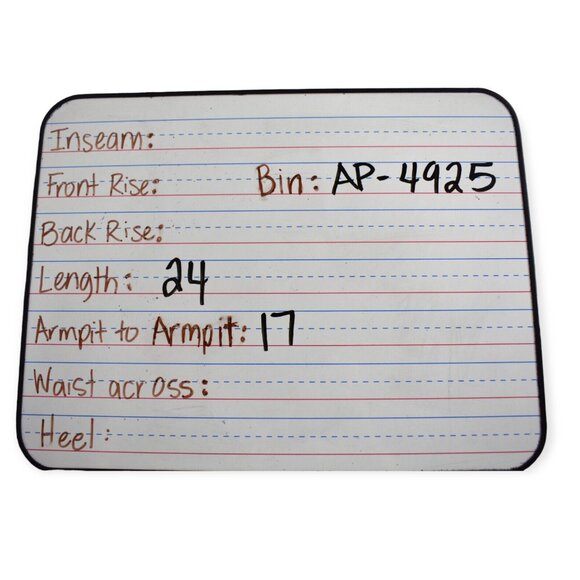 Inseam:
Front Rise: Bin: AP-4925
Back Rise:
Length: 24
Armpit to Armpit: 17
Waist across:
Heel: